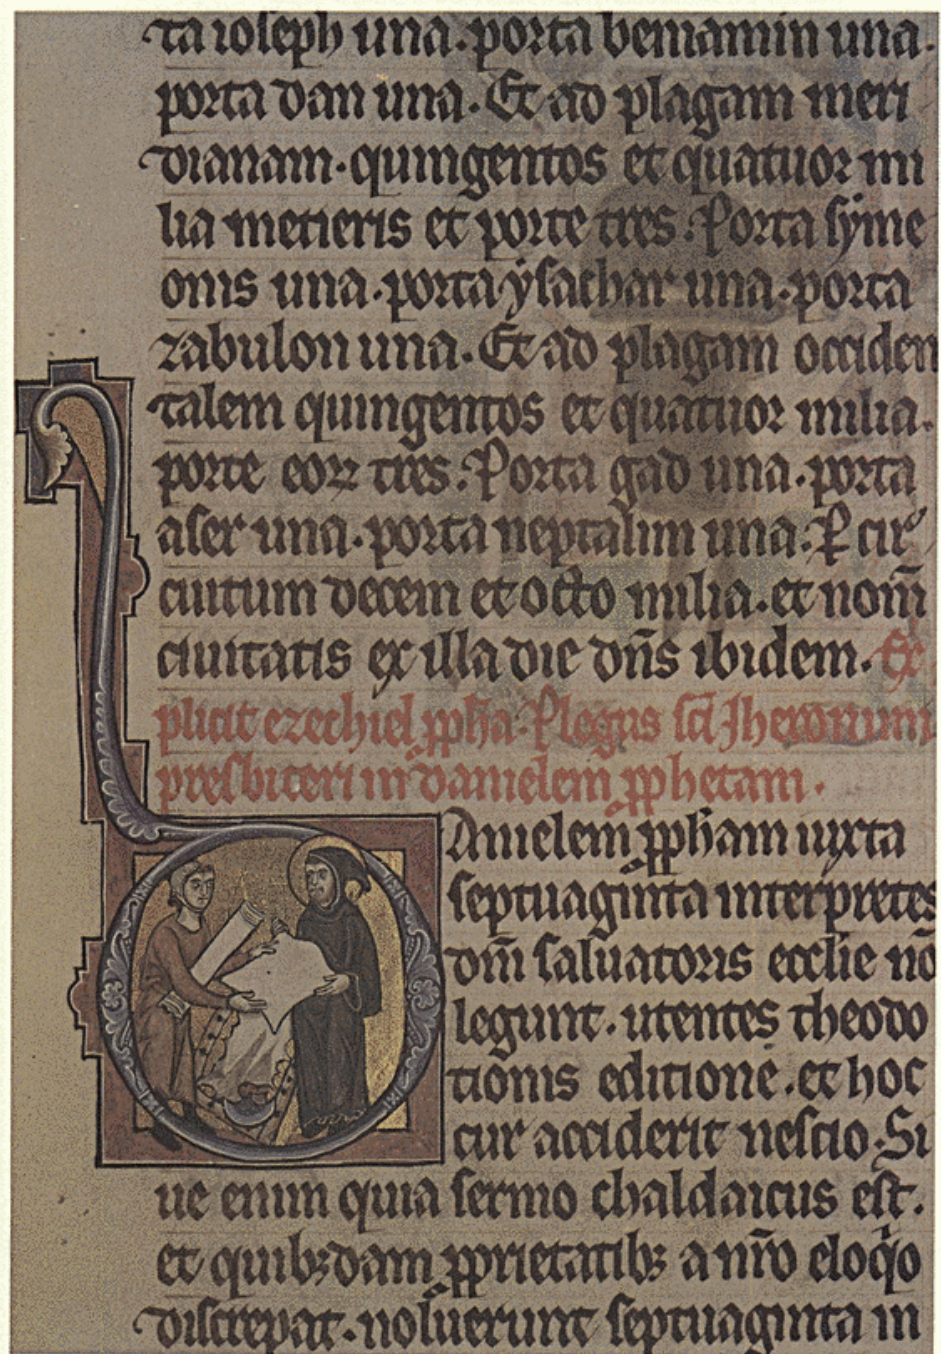 ta ioseph una. porta beniamin una.
porta dan una. Et ad plagam meri
dianam. quingentos et quatuor mi
lia metieris et porte tres. Porta syme
onis una. porta ysachar una. porta
zabulon una. Et ad plagam occiden
talem quingentos et quatuor milia.
porte eoꝝ tres. Porta gad una. porta
aser una. porta neptalim una. Ꝑ cir
cuitum decem et octo milia. et nom̄
ciuitatis ex illa die dn̄s ibidem. Ex
plicit ezechiel ꝓpha. Plogus sc̄i Iheronimi
presbiteri in danielem ꝓphetam.
Danielem ꝓpham iuxta
septuaginta interpretes
dn̄i saluatoris ecclie nō
legunt. utentes theodo
tionis editione. et hoc
cur acciderit nescio. Si
ue enim quia sermo chaldaicus est.
et quibꝫdam ꝓprietatibꝫ a nr̄o eloqͦo
discrepat. noluerunt septuaginta in